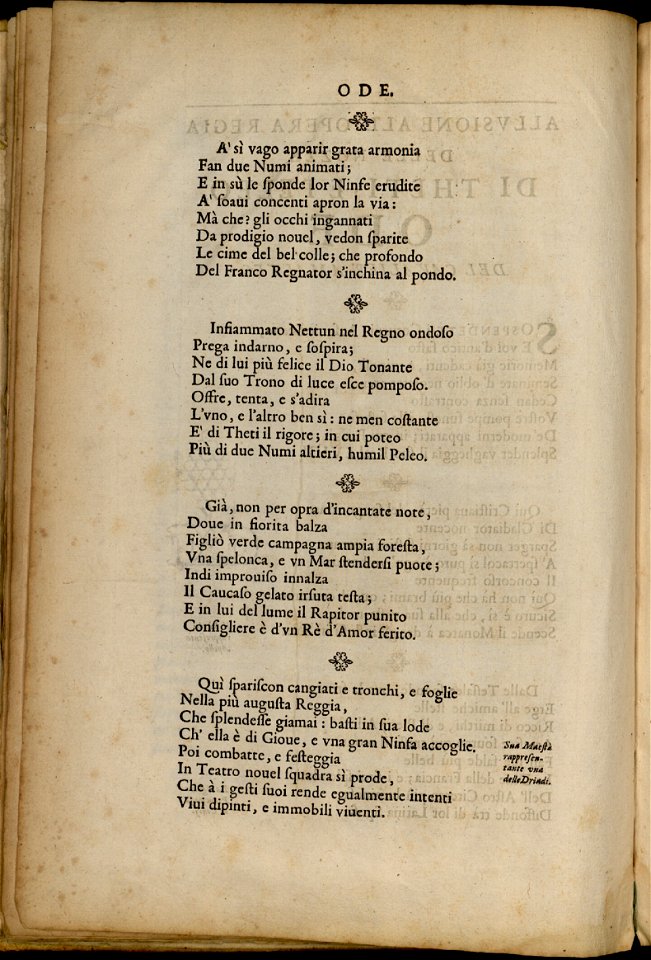 ODE.
A' sì vago apparir grata armonia
Fan due Numi animati;
E in sù le ſponde lor Ninfe erudite
A' ſoaui concenti apron la via:
Mà che? gli occhi ingannati
Da prodigio nouel, vedon ſparite
Le cime del bel colle; che profondo
Del Franco Regnator s'inchina al pondo.
Infiammato Nettun nel Regno ondoſo
Prega indarno, e ſoſpira;
Ne di lui più felice il Dio Tonante
Dal ſuo Trono di luce eſce pompoſo.
Offre, tenta, e s'adira
L'vno, e l'altro ben sì: ne men coſtante
E' di Theti il rigore; in cui poteo
Più di due Numi altieri, humil Peleo.
Già, non per opra d'incantate note,
Doue in fiorita balza
Figliò verde campagna ampia foreſta,
Vna ſpelonca, e vn Mar ſtenderſi puote;
Indi improuiſo innalza
Il Caucaſo gelato irſuta teſta;
E in lui del lume il Rapitor punito
Conſigliere è d'vn Rè d'Amor ferito.
Quì ſpariſcon cangiati e tronchi, e foglie
Nella più auguſta Reggia,
Che ſplendeſſe giamai: baſti in ſua lode
Ch' ella è di Gioue, e vna gran Ninfa accoglie.
Poi combatte, e feſteggia
In Teatro nouel ſquadra sì prode,
Che à i geſti ſuoi rende egualmente intenti
Viui dipinti, e immobili viuenti.
Sua Maeſtà
rappreſen-
tante vna
delle Driadi.